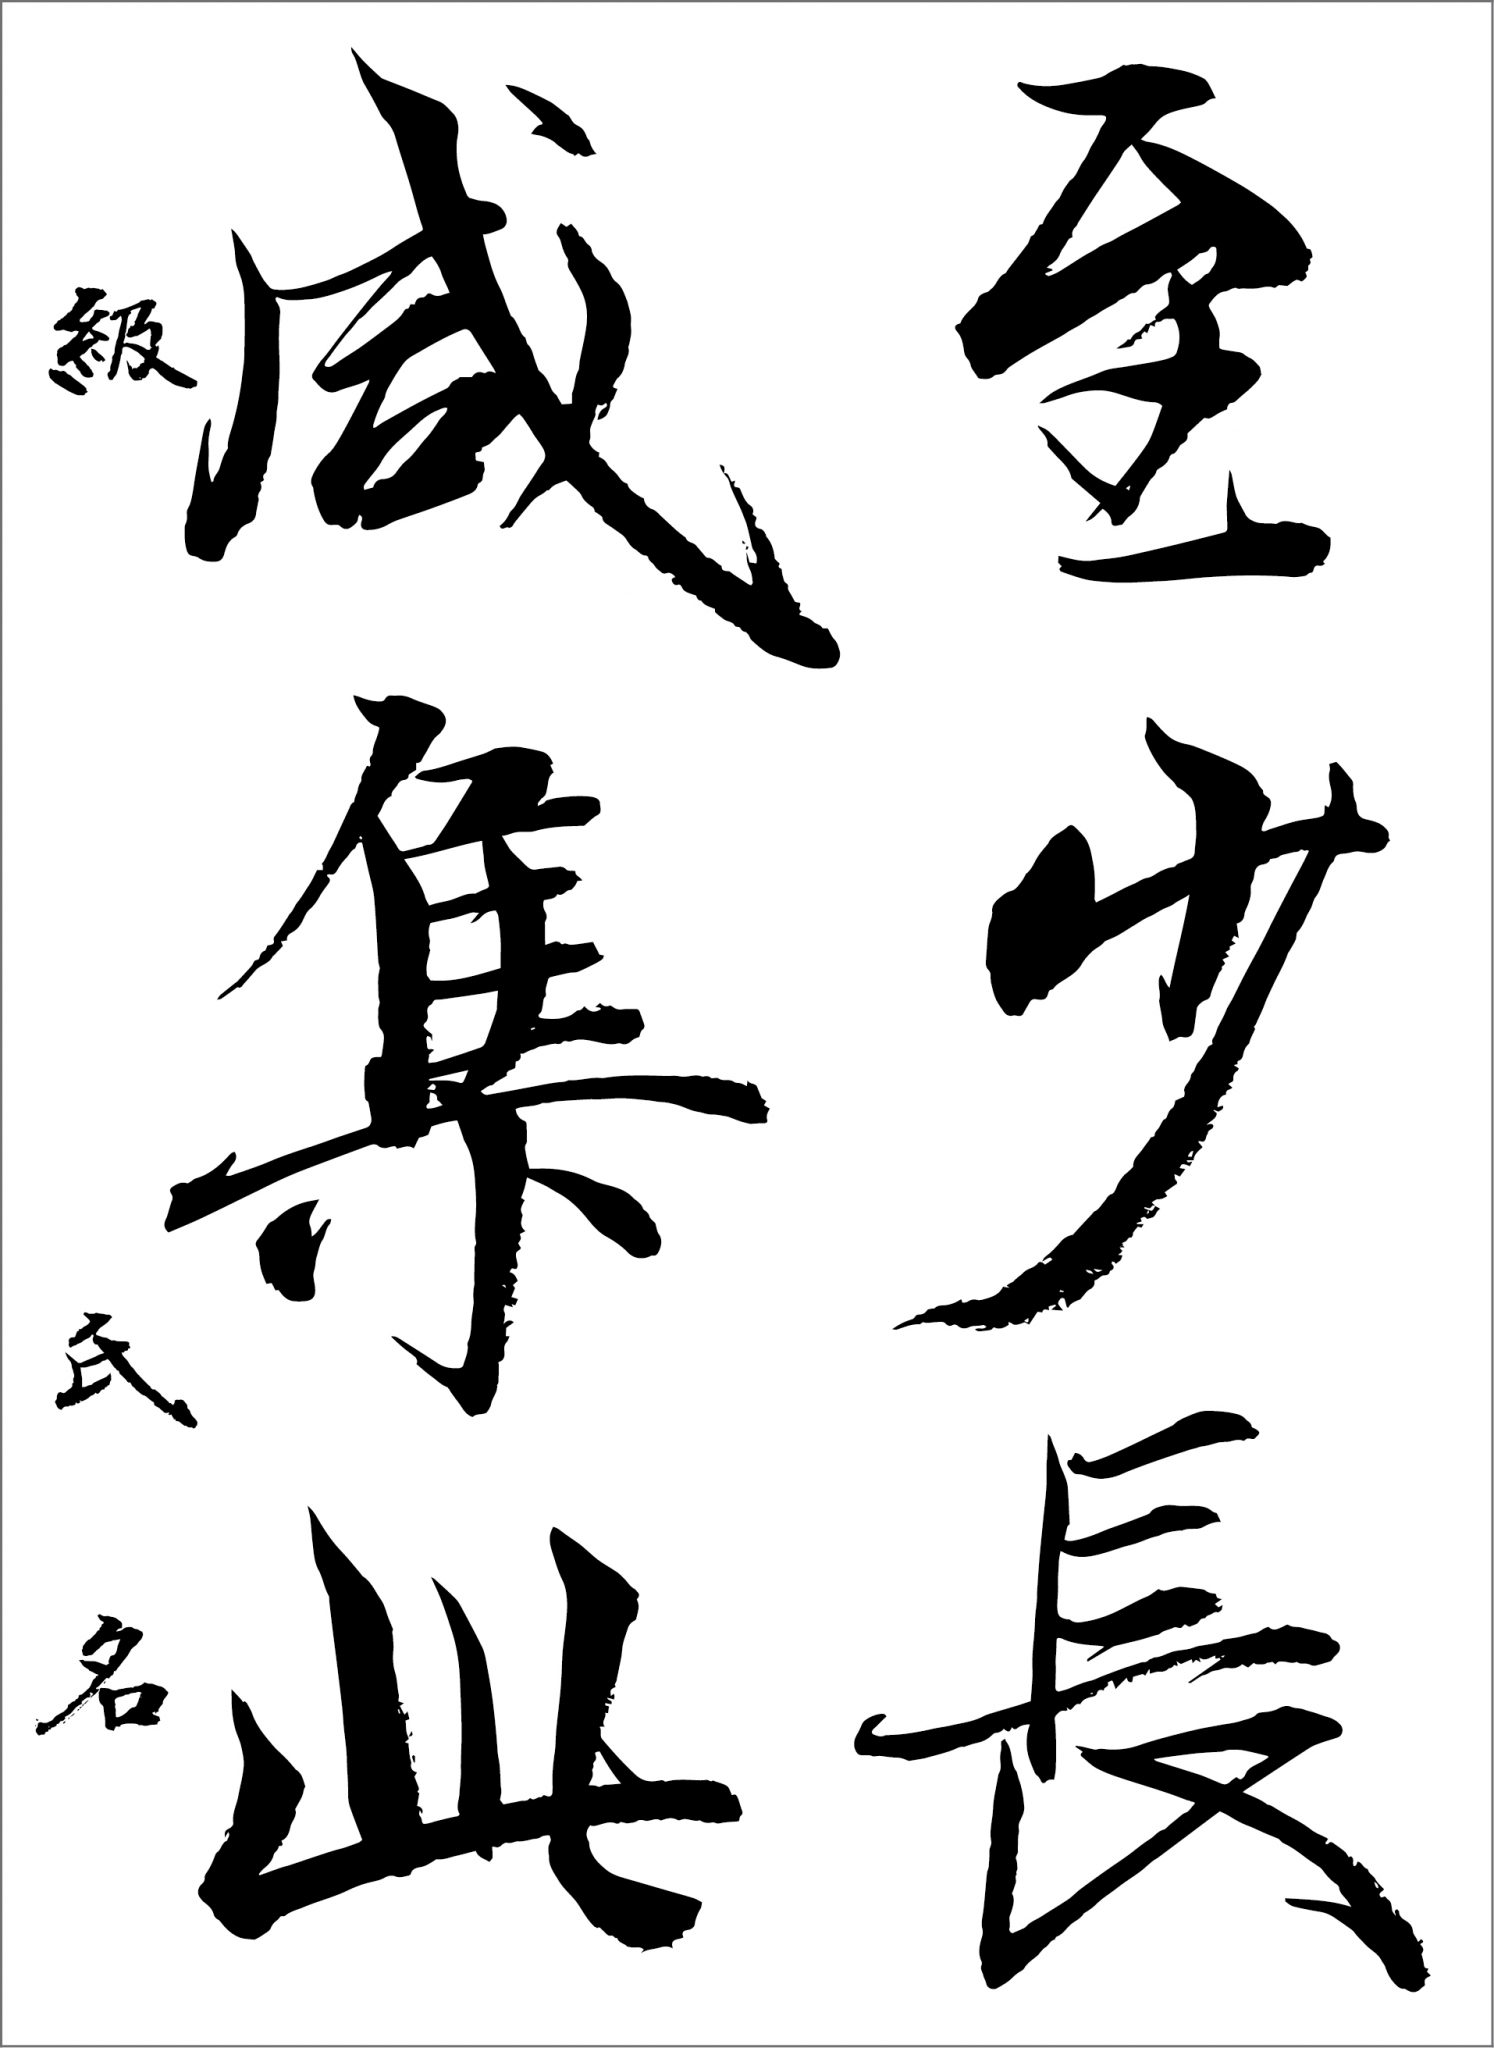 至少長
咸集此
級 氏 名